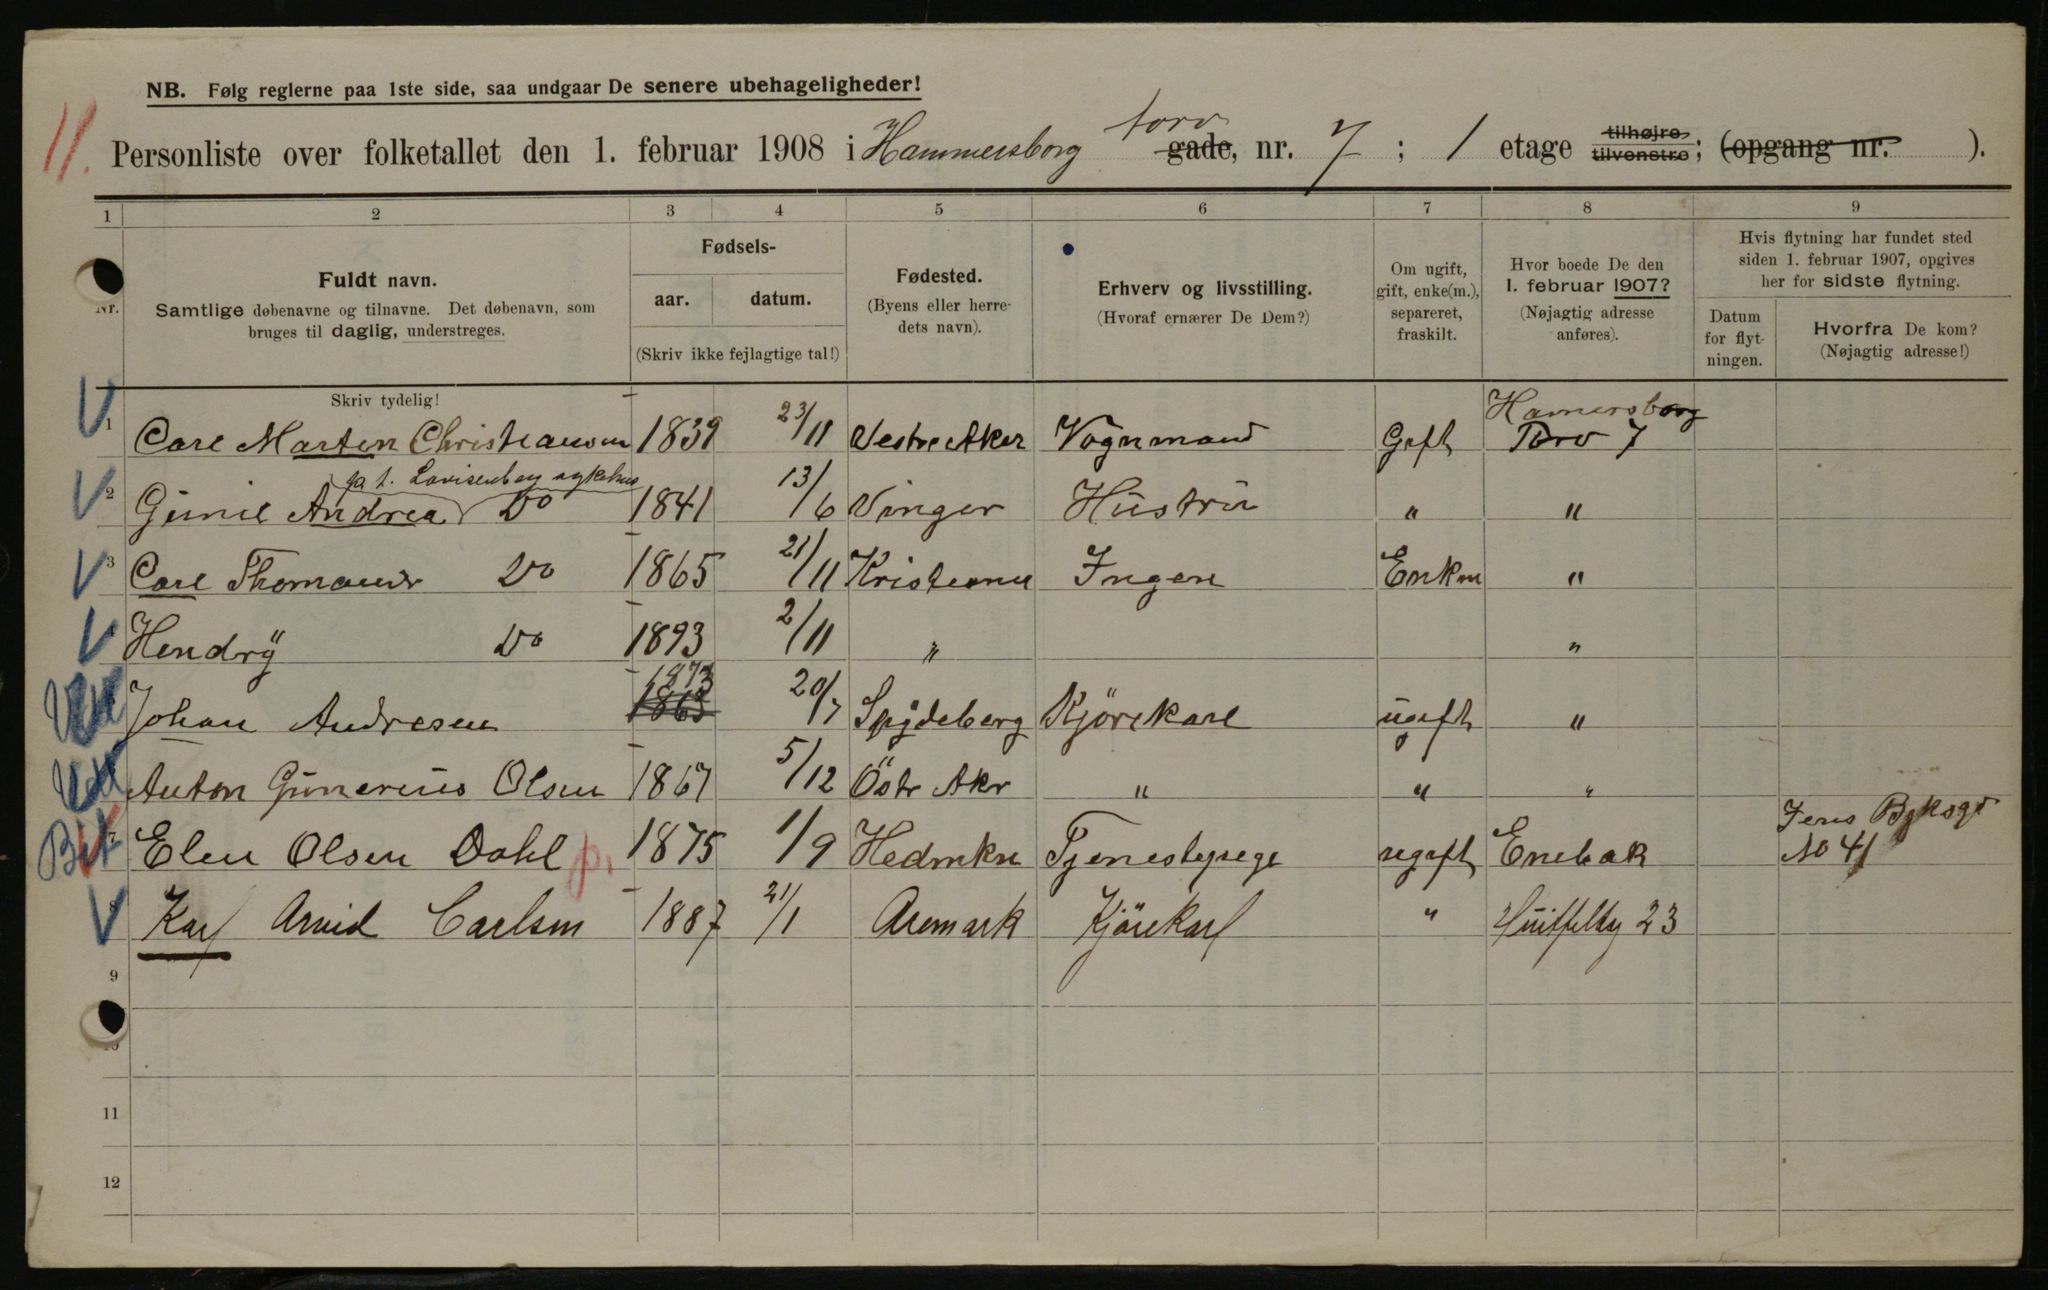 NB. Følg reglerne paa 1ste side, saa undgaar De senere ubehageligheder!
11.
torv
Personliste over folketallet den 1. februar 1908 i Hammersborg gade, nr. 7 ; 1 etage tilhøjre tilvenstre; (opgang nr. ).
1 2 3 4 5 6 7 8 9
Nr.
Fuldt navn.
Samtlige døbenavne og tilnavne. Det døbenavn, som
bruges til daglig, understreges.
Fødsels-
aar. datum.
(Skriv ikke fejlagtige tal!)
Fødested.
(Byens eller herre-
dets navn).
Erhverv og livsstilling.
(Hvoraf ernærer De Dem?)
Om ugift,
gift, enke(m.),
separeret,
fraskilt.
Hvor boede De den
1. februar 1907?
(Nøjagtig adresse
anføres).
Hvis flytning har fundet sted
siden 1. februar 1907, opgives
her for sidste flytning.
Datum
for flyt-
ningen.
Hvorfra De kom?
(Nøjagtig adresse!)
Skriv tydelig!
Hamersborg
V 1 Carl Marten Christiansen 1839 23/11 Vestre Aker Vognmand Gift Torv 7
p. t. Lovisenberg sykehus
V 2 Gunil Andrea Do 1841 13/6 Vinger Hustru " "
V 3 Carl Thomander Do 1865 21/11 Kristiania Ingen Enkm "
V Hendrÿ Do 1893 2/11 " "
1873
Johan Andresen 1863 20/7 Spÿdeberg Kjörekarl ugift "
Anton Gunerius Olsen 1867 5/12 Östr Aker " " "
Jens Bjelkesgt
7 Elen Olsen Dahl p. 1875 1/9 Hedmken Tjenestepege ugift Enebak No 41
V 8 Karl Arvid Carlsen 1887 21/1 Aremark Kjörekarl " Huitfeltg 23
9
10
11
12